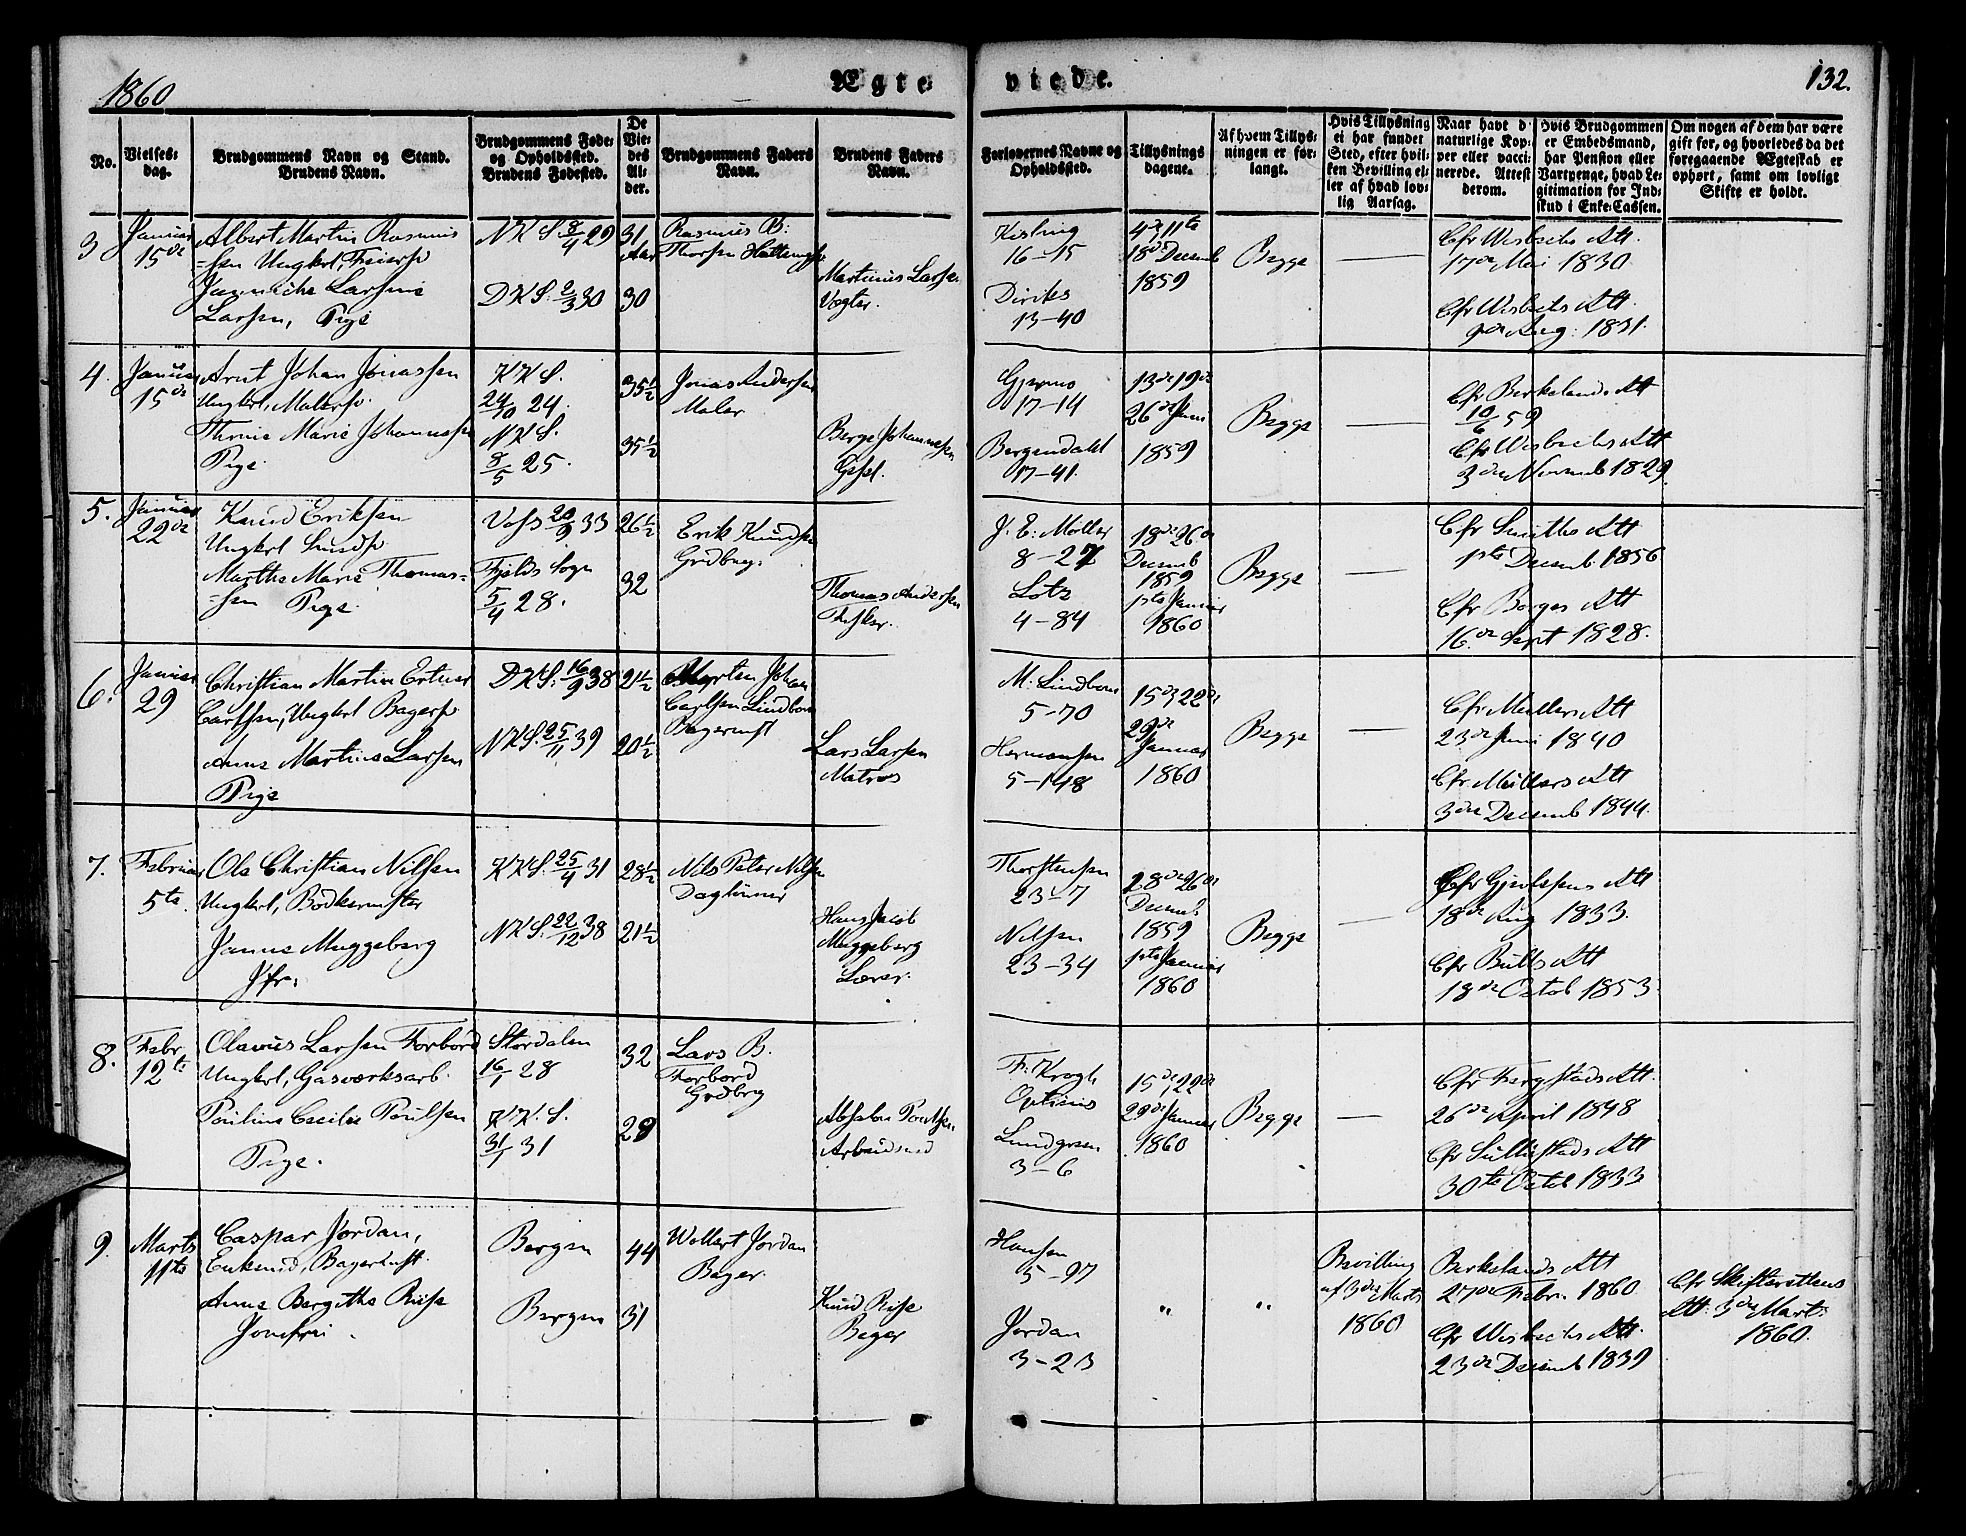 1860
Ægte
viede.
132.
No.
Vielses-
dag.
Brudgommens Navn og Stand.
Brudens Navn.
Brudgommens Føde-
og Opholdssted.
Brudens Fødested.
De
Vie-
des
Al-
der.
Brudgommens Faders
Navn.
Brudens Faders
Navn.
Forlovernes Navne og
Opholdssted.
Tillysnings
dagene.
Af hvem Tillys-
ningen er for-
langt.
Hvis Tillysning
ei har fundet
Sted, efter hvil-
ken Bevilling el-
ler af hvad lov-
lig Aarsag.
Naar havt d
naturlige Kop-
per eller vacci-
nerede. Attest
derom.
Hvis Brudgommen
er Embedsmand,
har Pension eller
Vartpenge, hvad Le-
gitimation for Ind-
skud i Enke-Cassen.
Om nogen af dem har være
gift før, og hvorledes da det
foregaaende Ægteskab er
ophørt, samt om lovligt
Skifte er holdt.
3
Januar
15de
Albert Martin Rasmus
=sen Ungkrl,
Larsine
Larsen, Pige
NKS. 8/4 29
DKS. 2/3 30
31
Aar
30
Rasmus B:
Thorsen
Martinus Larsen
Vegter.
Kisling
16-15
Diriks
13-40
4de 11te
18de Decemb
1859
Begge
—
Cfr Wisbechs Att.
17de Mai 1830.
Cfr Wisbechs Att
9de Aug: 1831.
4.
Januar
15de
Arnt Johan Jonassen
Ungkrl, Malersv.
Marie Johannessen
Pige
KKS.
24/10 24.
NKS.
8/5 25.
35½
35½
Jonas Andersen
Maler
Berge Johannesen
Gesel.
17-14
Bergendahl
17-41.
13de 19de
26de Juni
1859
Begge
—
Cfr Birkelands Att
10/6 59
Cfr Wisbechs Att
3de Novemb 1829.
5.
Januar
22de
Knud Eriksen
Ungkrl Smedsv
Marthe Marie Thomas=
=sen Pige.
Voss 20/9 33
Fjelds Sogn
5/4 28.
26½
32
Erik Knudsen
Grdbrug.
Thomas Andersen
Fisker.
J. E. Møller
8-27
Lotz
4-84
18de 26de
Decemb
1859
1ste Januar
1860
Begge
—
Cfr Smiths Att
1ste Decemb. 1856
Cfr Borges Att
16.de Sept 1828.
6.
Januar
29
Christian Martin
Carlsen, Ungkrl Bagersv
Anne Martine Larsen
Pige
DKS. 16/9 38
NKS. 25/11 39
21½
20½
Morten Johan
Carlsen Lindbom
Bagermst
Lars Larsen
Matros
M. Lindbom
5-70
Hermansen
5-148
15de 22de
29de
Januar
1860
Begge
—
Cfr Müllers Att
23de Juni 1840
Cfr Müllers Att
3de Decemb 1844.
7.
Februar
5te.
Ole Christian Nilsen
Ungkrl, Bødkermester
Janne Muggeberg
Jfr.
KKS. 25/4 31
NKS. 22/12 38
28½
21½
Nils Peter Nilsen
Daglønner
Hans Jacob
Muggeberg
Lærer.
Thorstensen
23-7
Nilsen
23-34
18de 26de
Decemb
1859
1ste Januar
1860
Begge
—
Cfr Gjertsens Att
18de Aug 1833.
Cfr Bulls Att
18de Octob 1853.
8.
Febr
12te
Olavus Larsen Forbord
Ungkrl, Gasværksarb.
Pouline Cecilie Poulsen
Pige.
Stordalen
16/1 28
K.K.S.
31/1 31
32
29
Lars B.
Forbord
Grdbrg
Absalon Poulsen
Arbeidsmd
Fr. Krogh
Opticus
Lundgreen
3-6
15de, 22de
29de Januar
1860
Begge
—
Cfr Fergstads Att.
26de April 1848
Cfr Att
30te Octob 1833
9.
Marts
11te
Caspar Jordan,
Enkemd, Bagermst.
Anne Bergithe Riise
Jomfru.
Bergen
Bergen
44
31
Wollert Jordan
Bager.
Knud Riise
Bager
Hansen
5-97
Jordan
3-23
"
"
Bevilling
af 3de Marts
1860
Birkelands Att
27de Febr. 1860.
Cfr Wisbechs Att.
23de Decemb 1839
Cfr Skifterettens
Att. 3de Marts
1860.